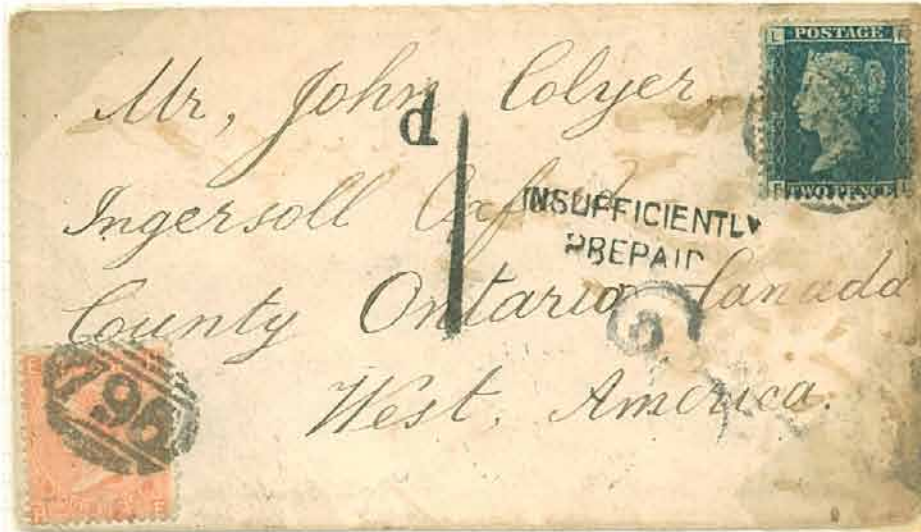 L POSTAGE F
F TWO PENCE L
Mr, John Colyer
1 d
Ingersoll Oxford
INSUFFICIENTLY
PREPAID
County Ontario Canada
West. America.
2
E
796
H E